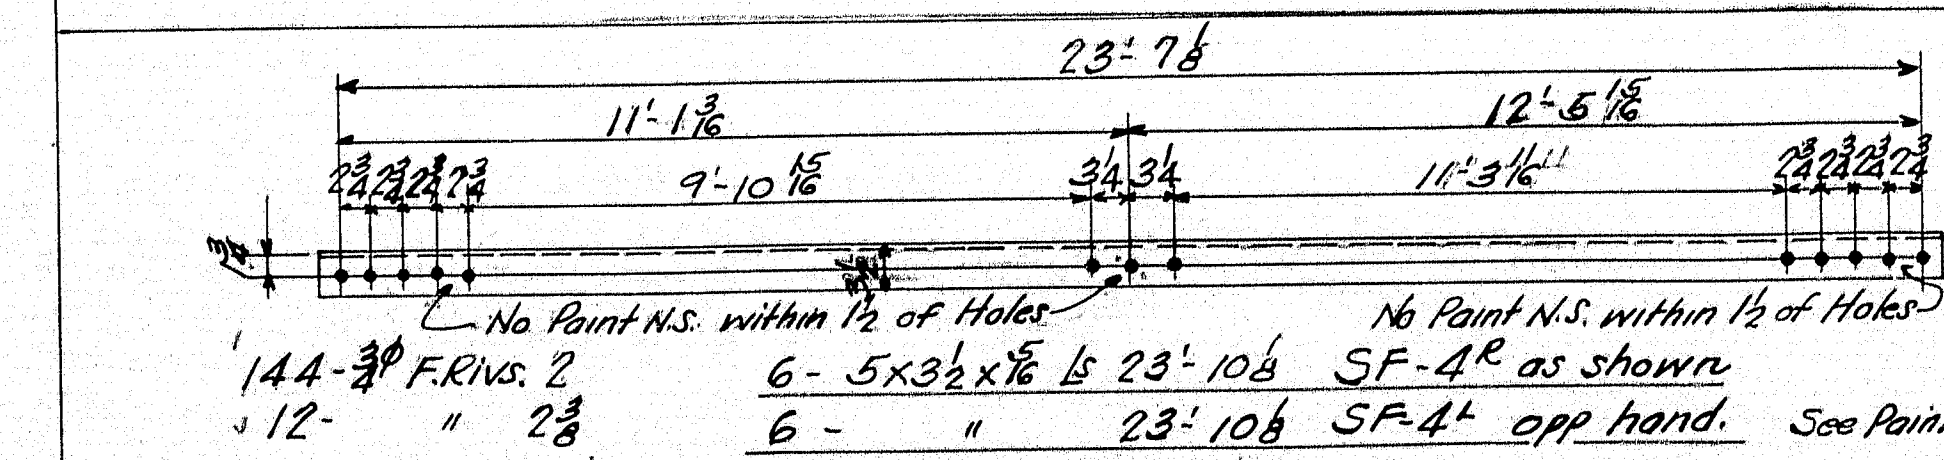 23'-7 1/8
11'-1 3/16 12'-5 15/16
2 3/4 2 3/4 2 3/4 2 3/4 9'-10 15/16 3 1/4 3 1/4 11'-3 11/16 2 3/4 2 3/4 2 3/4 2 3/4
3 1/2
No Paint N.S. within 1 1/2 of Holes No Paint N.S. within 1 1/2 of Holes
144-3/4ϕ F.Rivs. 2 6- 5x3 1/2x5/16 Ls 23'-10 1/8 SF-4R as shown
12- " 2 3/8 6- " 23'-10 1/8 SF-4L opp hand. See